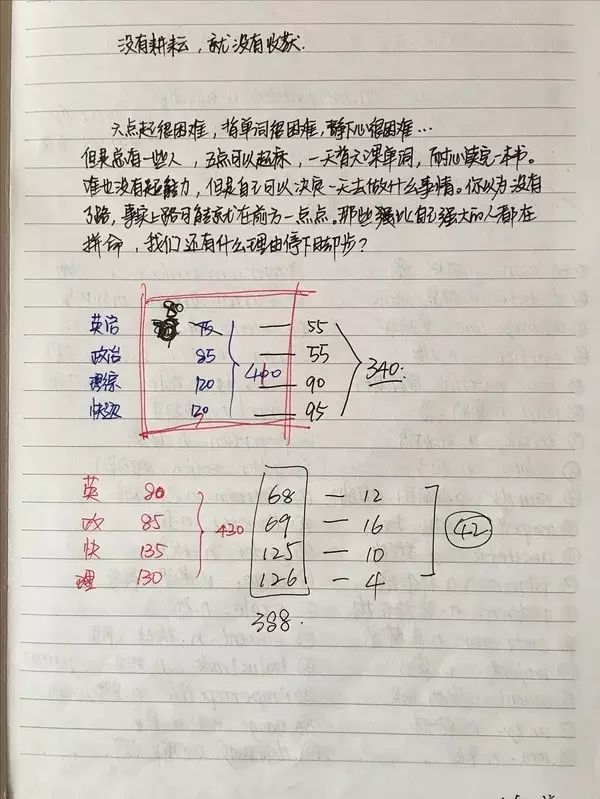 没有耕耘，就没有收获.
六点起很困难，背单词很困难，静下心很困难…
但是总有一些人，五点可以起床，一天背六课单词，耐心读完一本书。
谁也没有超能力，但是自己可以决定一天去做什么事情。你以为没有
了路，事实上路可能就在前方一点点。那些强比自己强大的人都在
拼命，我们还有什么理由停下脚步？
80
英语 75 — 55
政治 85 — 55
理综 120 400 — 90 340.
快设 120 — 95
英 80 68 — 12
政 85 430 69 — 16 42
快 135 125 — 10
理 130 126 — 4
388.